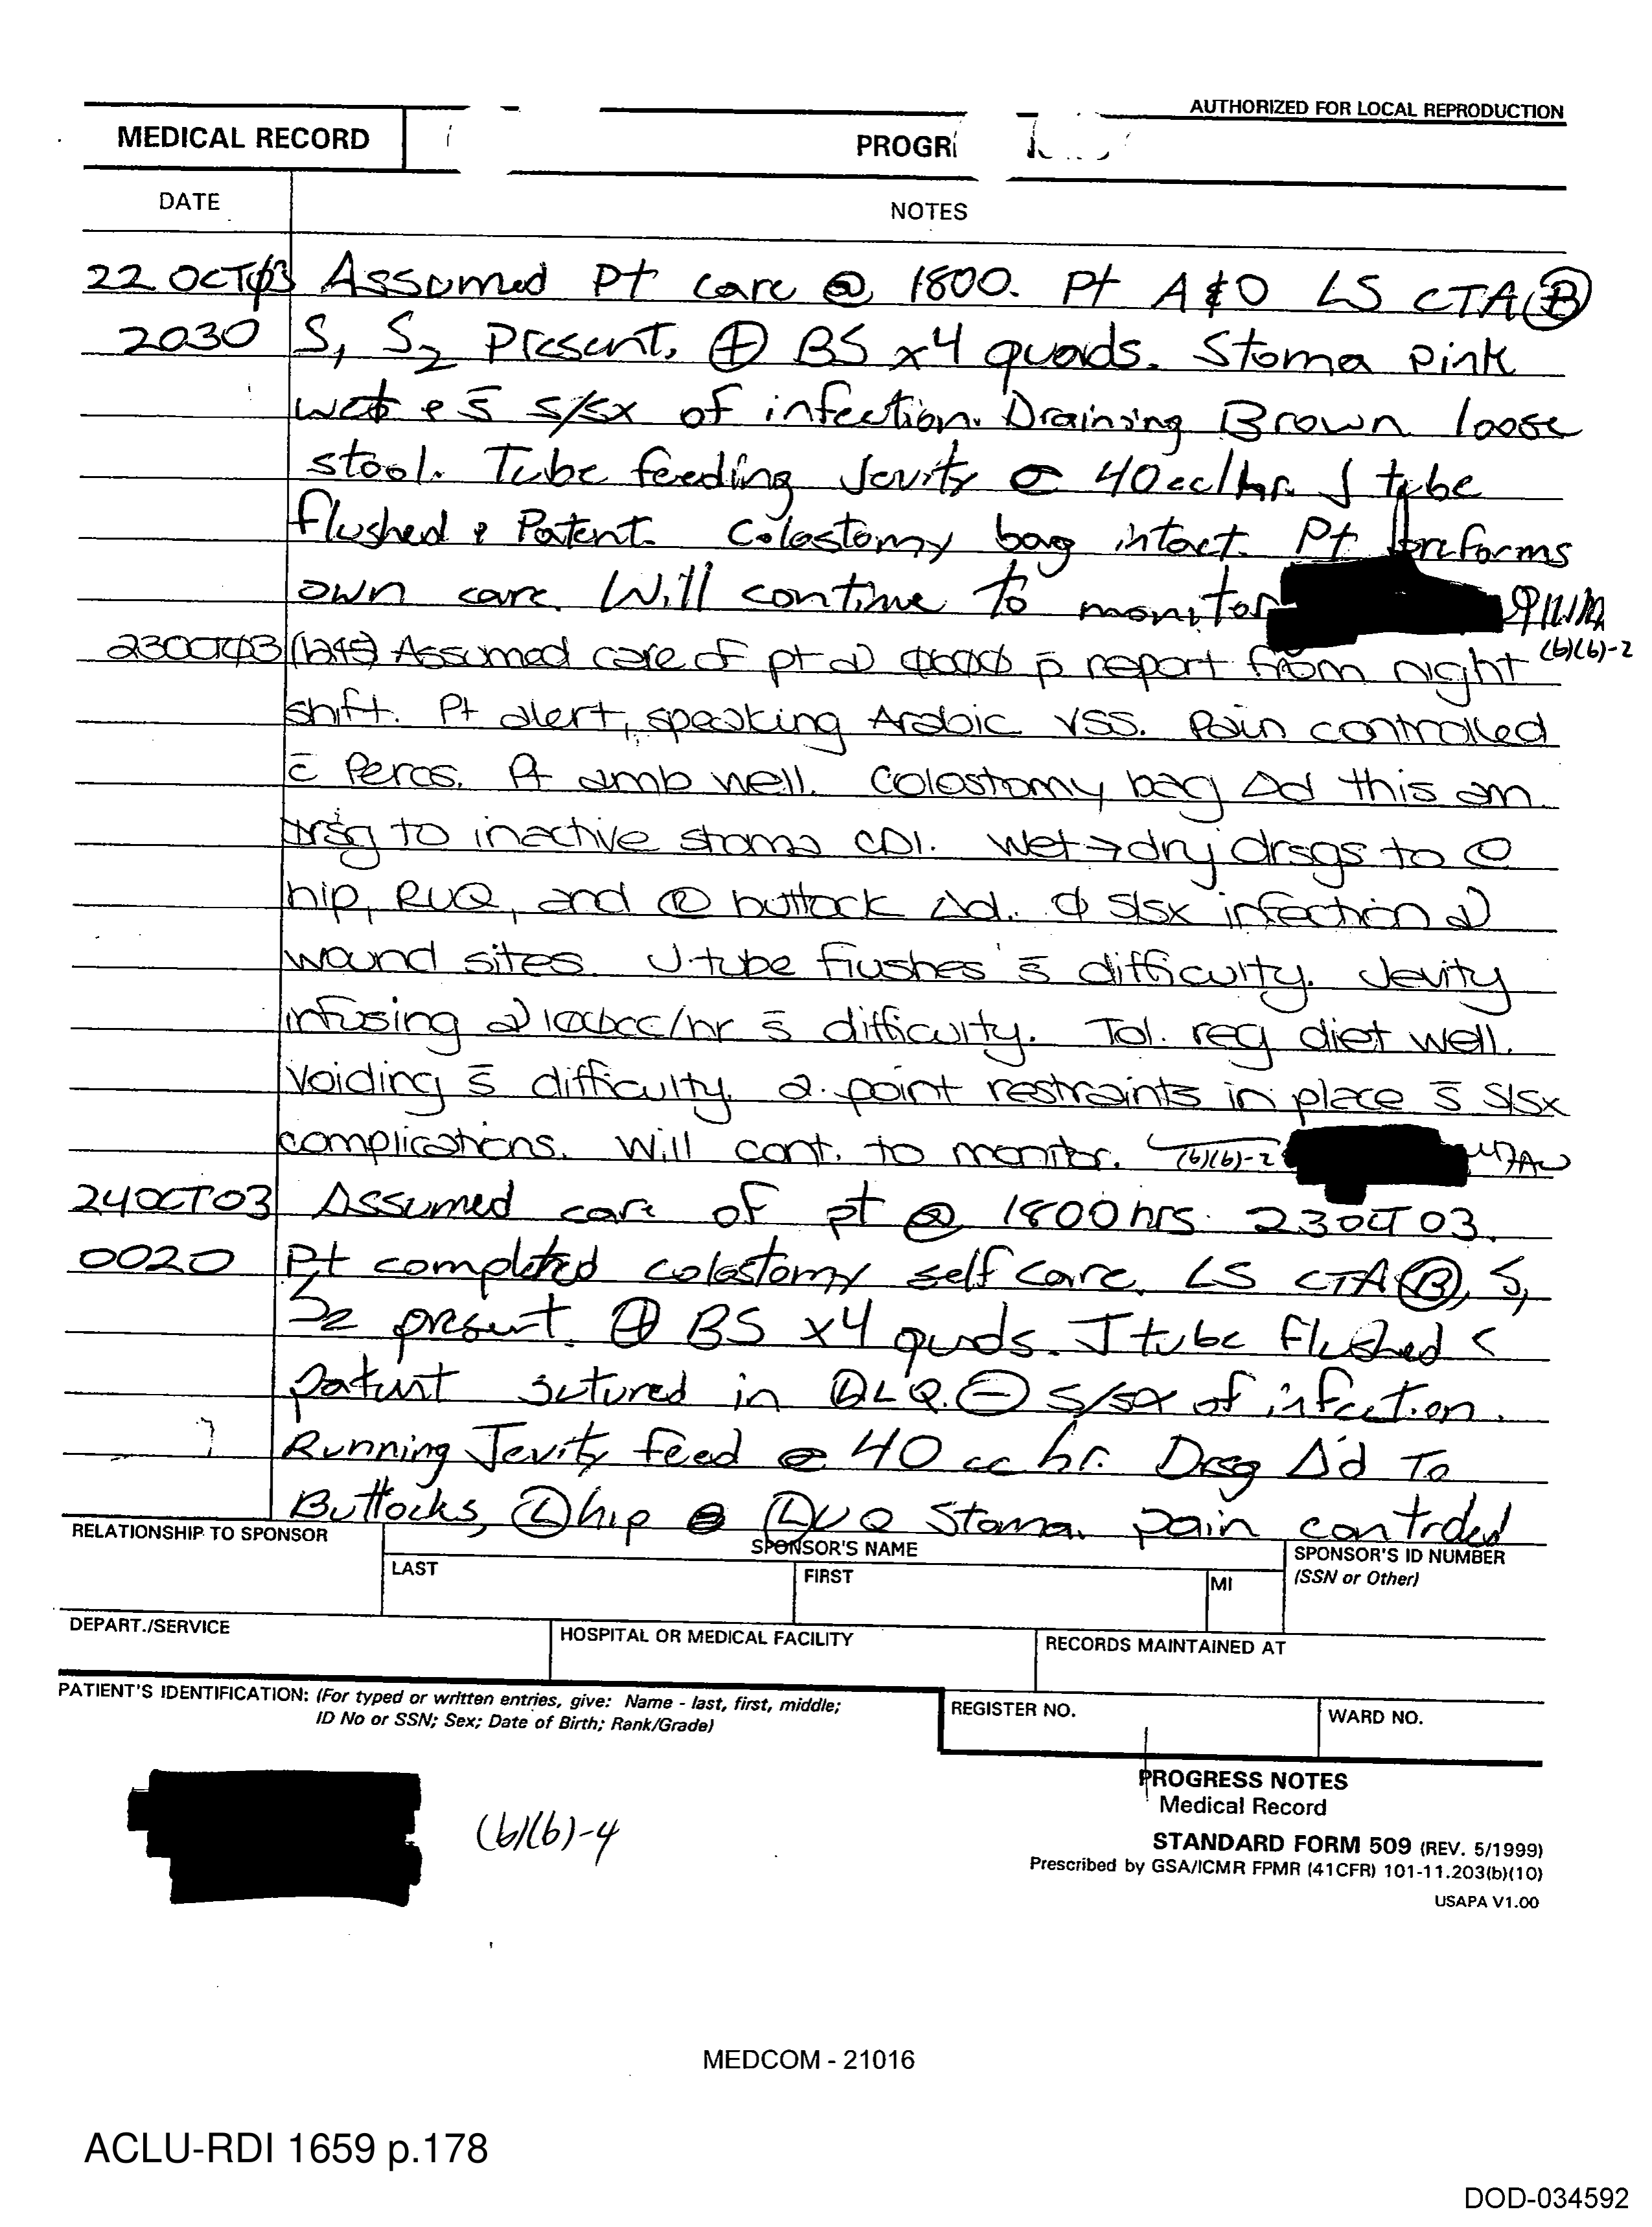 AUTHORIZED FOR LOCAL REPRODUCTION
MEDICAL RECORD
PROGR
DATE
NOTES
22 OCT 03 Assumed Pt care @ 1800. Pt A&O LS CTA Ⓑ
2030 S1 S2 Present. ⊕ BS x4 quads. Stoma Pink
wet s̄ s/sx of infection. Draining Brown loose
stool. Tube feeding Jevity @ 40cc/hr. J tube
flushed & Patent. Colostomy bag intact. Pt preforms
own care. Will continue to monitor
(b)(6)-2
23OCT03 (1245) Assumed care of pt @ 0600 p̄ report from night
shift. Pt alert, speaking Arabic VSS. Pain controlled
c̄ Percs. Pt amb well. Colostomy bag Δd this am
Drsg to inactive stoma CDI. Wet→dry drsgs to Ⓛ
hip, RUQ, and buttock Δd. ϕ S/sx infection @
wound sites. J-tube flushes s̄ difficulty. Jevity
infusing @ cc/hr s̄ difficulty. Tol. reg diet well.
Voiding s̄ difficulty. 2-point restraints in place s̄ S/Sx
complications. Will cont. to monitor. (b)(6)-2
24OCT03 Assumed care of pt @ 1800hrs 23OCT03.
0020 Pt completed colostomy self care. LS CTA Ⓑ, S1
S2 present. ⊕ BS x4 quads. J tube Flushed &
patent sutured in LQ. ⊖ s/sx of infection.
Running Jevity feed @ 40 cc hr. Drsg Δ'd To
Buttocks, Ⓛ hip & UQ Stoma. pain controlled
RELATIONSHIP TO SPONSOR
SPONSOR'S NAME
SPONSOR'S ID NUMBER
LAST
FIRST
MI
(SSN or Other)
DEPART./SERVICE
HOSPITAL OR MEDICAL FACILITY
RECORDS MAINTAINED AT
PATIENT'S IDENTIFICATION: (For typed or written entries, give: Name - last, first, middle;
ID No or SSN; Sex; Date of Birth; Rank/Grade)
REGISTER NO.
WARD NO.
(b)(6)-4
PROGRESS NOTES
Medical Record
STANDARD FORM 509 (REV. 5/1999)
Prescribed by GSA/ICMR FPMR (41CFR) 101-11.203(b)(10)
USAPA V1.00
MEDCOM - 21016
ACLU-RDI 1659 p.178
DOD-034592